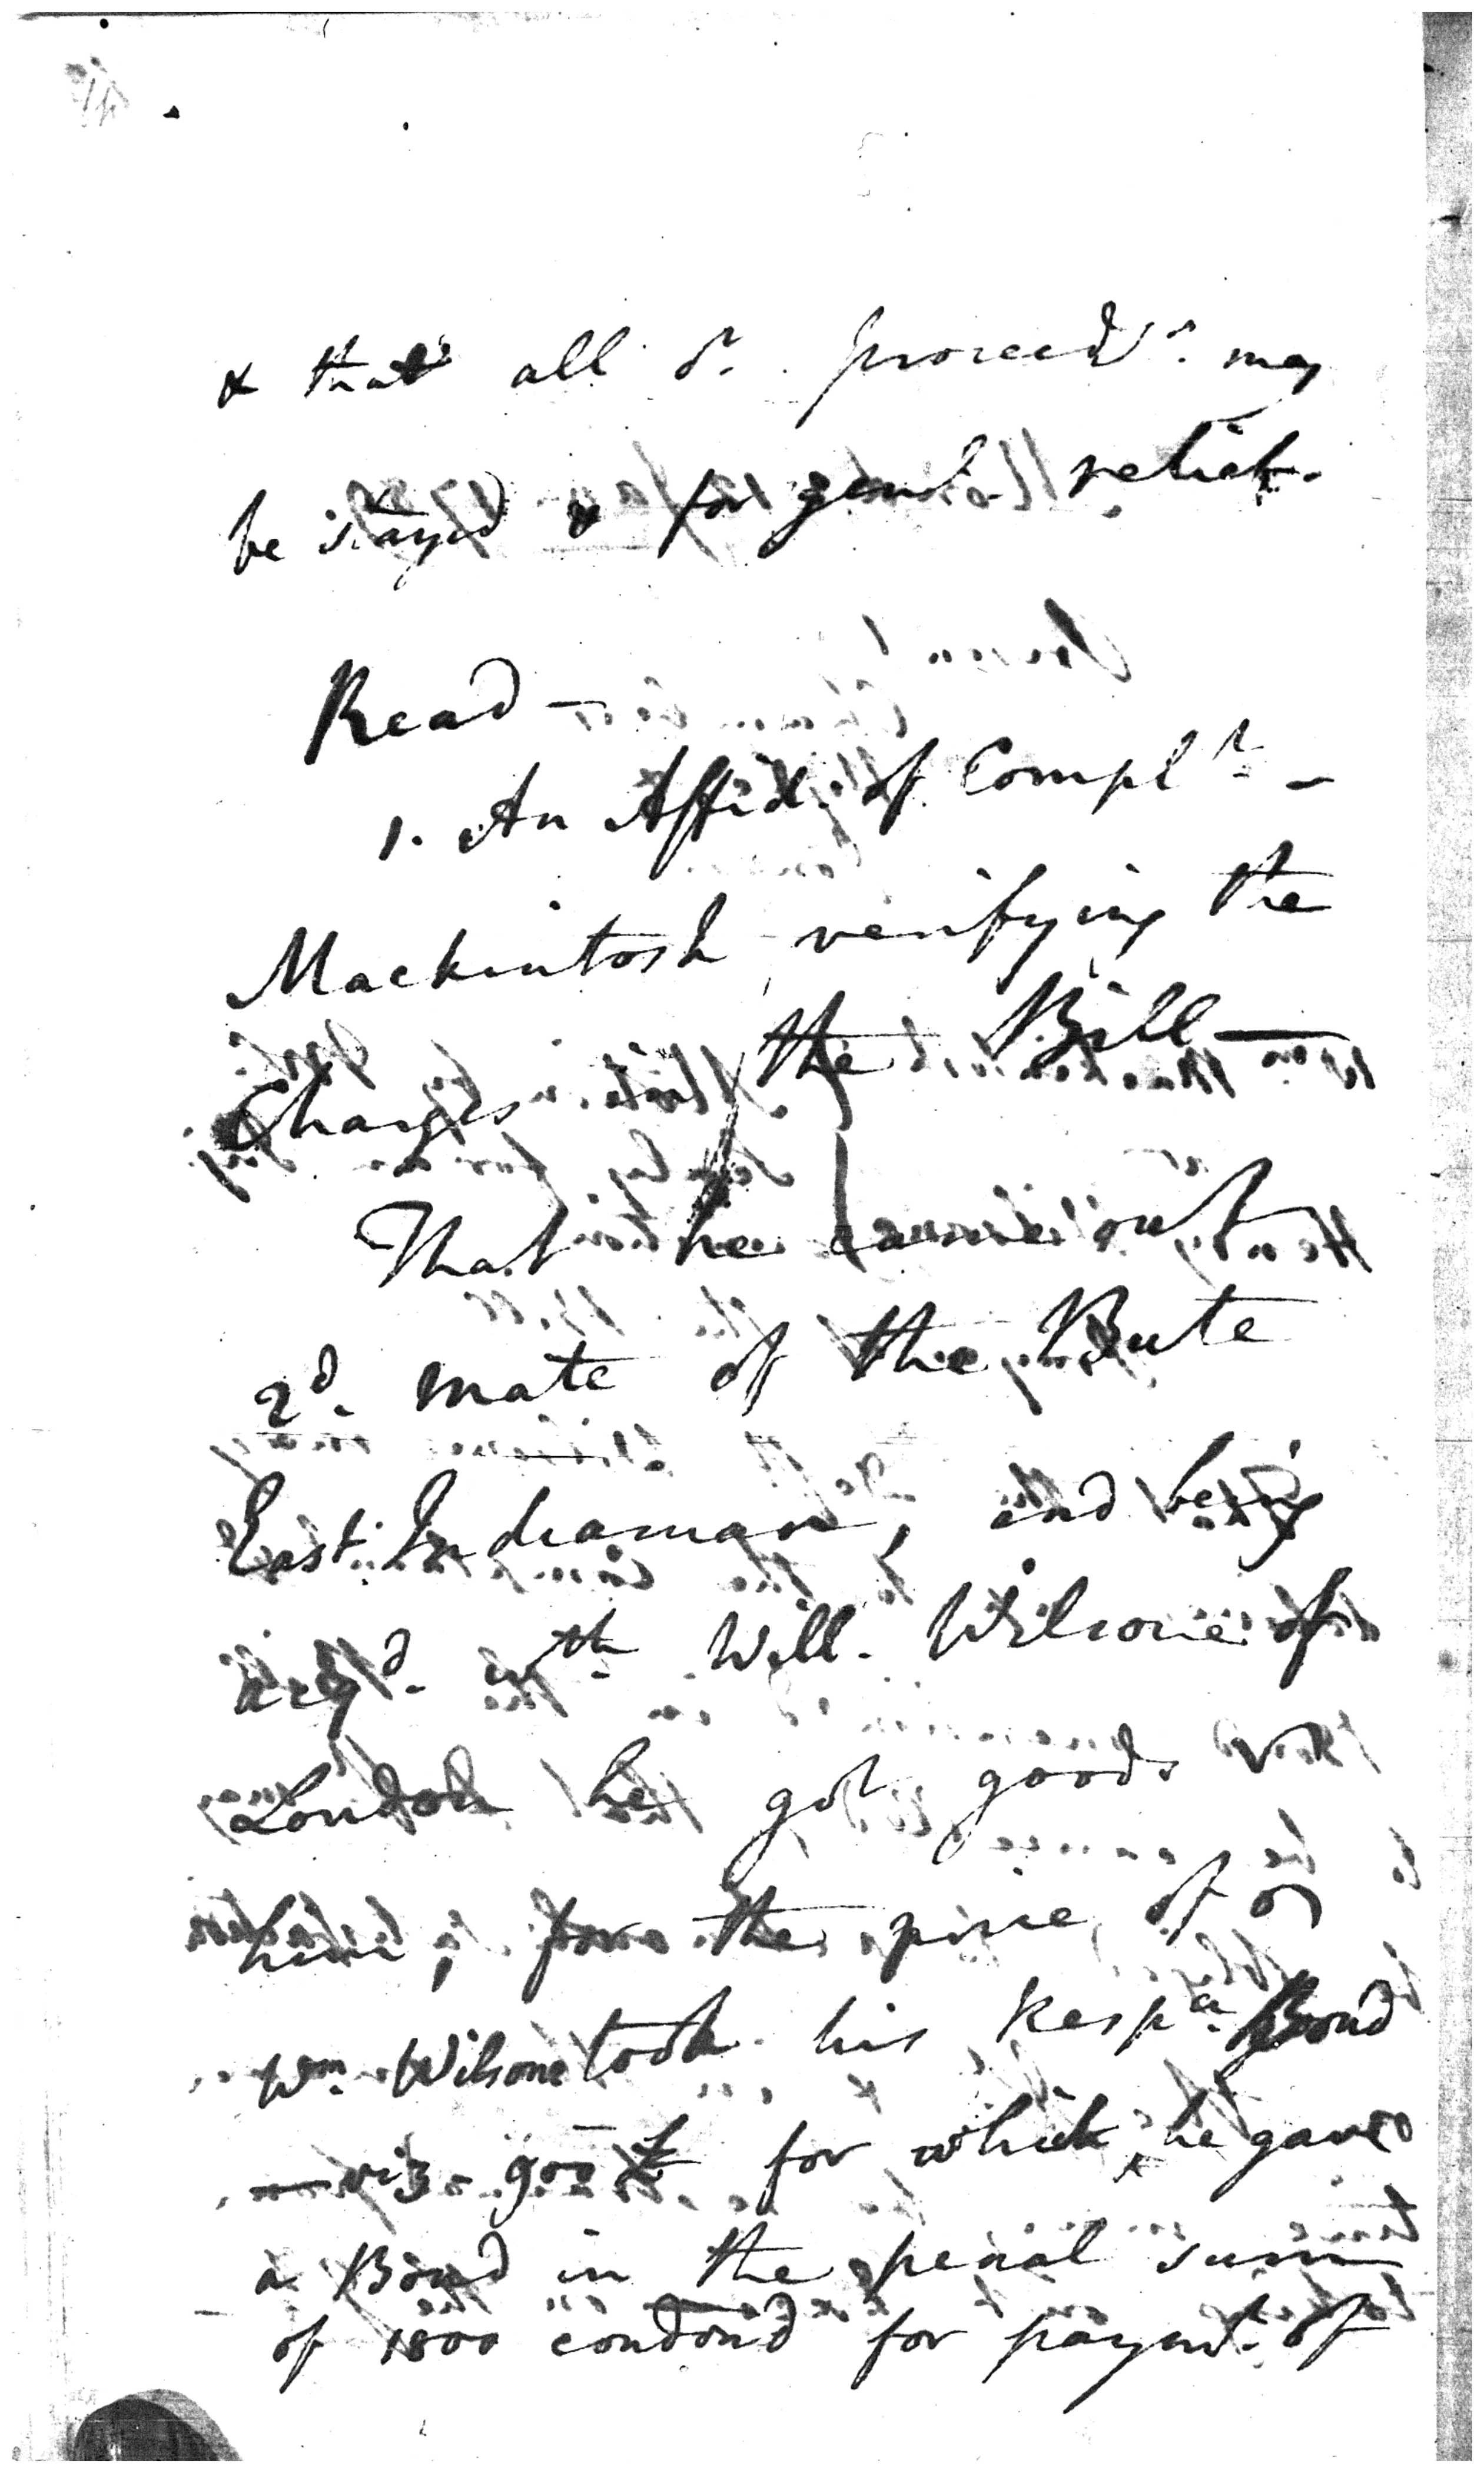 & that all sd. proceedgs. may
be stayed & for genl. relief.
Read —
1. An Affid. of Complt. —
Mackintosh verifying the
Charges in the Bill —
That he came out
2d. mate of the Bute
East Indiaman, and being
acqd. wth Will. Wilsone of
London he got goods
him, for the price of
Wm. Wilsone took his Respa. Bond
— viz. 900 £ for which he gave
a Bond in the penal sum
of 1800 condond for paymt. of